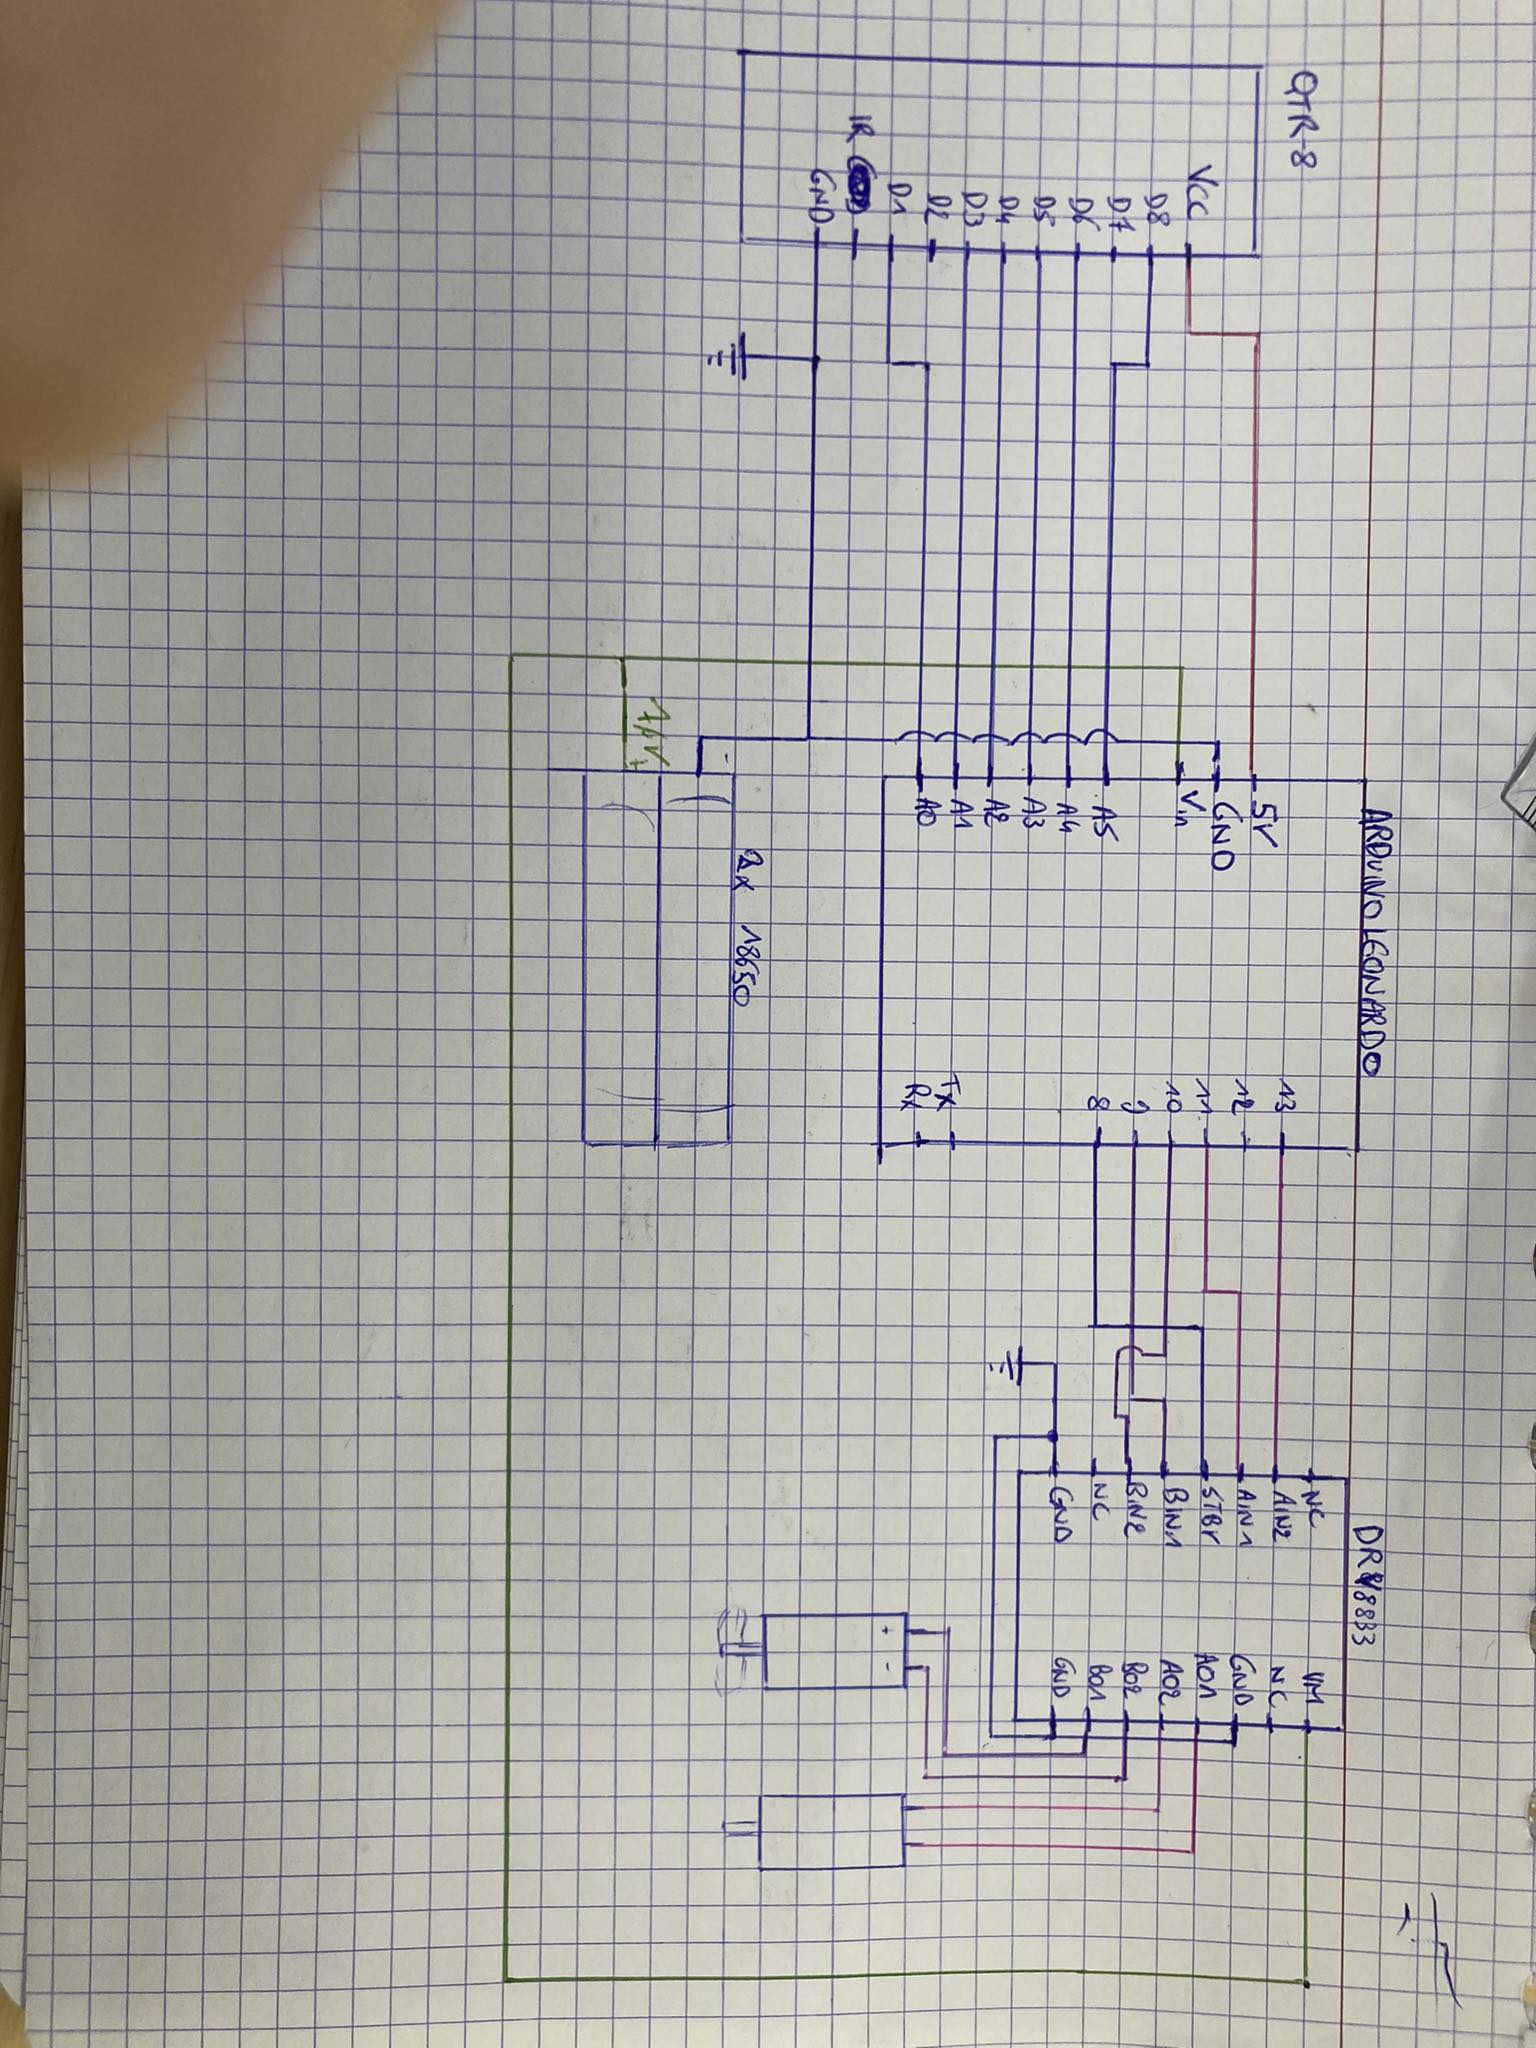 QTR-8
VCC
D8
D7
D6
D5
D4
D3
D2
D1
IR
GND
ARDUINO LEONARDO
5V
GND
Vin
A5
A4
A3
A2
A1
A0
13
12
11
10
9
8
TX
RX
+
-
2x 18650
DRV8833
NC
AIN2
AIN1
STBY
BIN1
BIN2
NC
GND
VM
NC
GND
AO1
AO2
BO2
BO1
GND
+ -